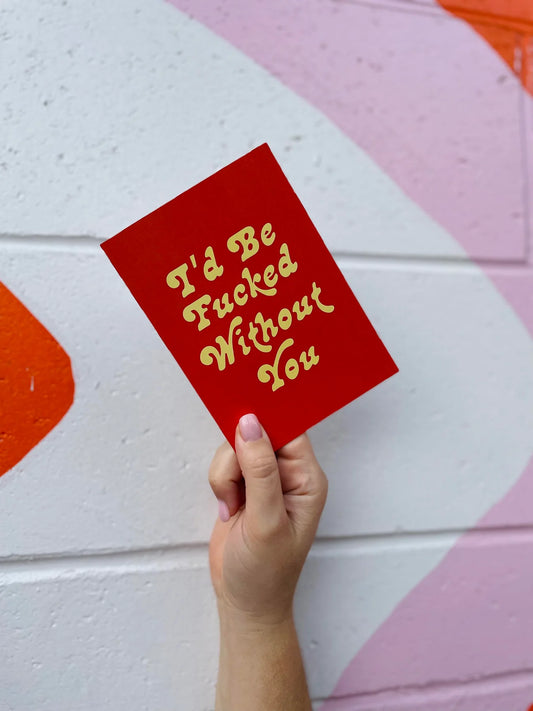 I'd Be
Fucked
Without
You